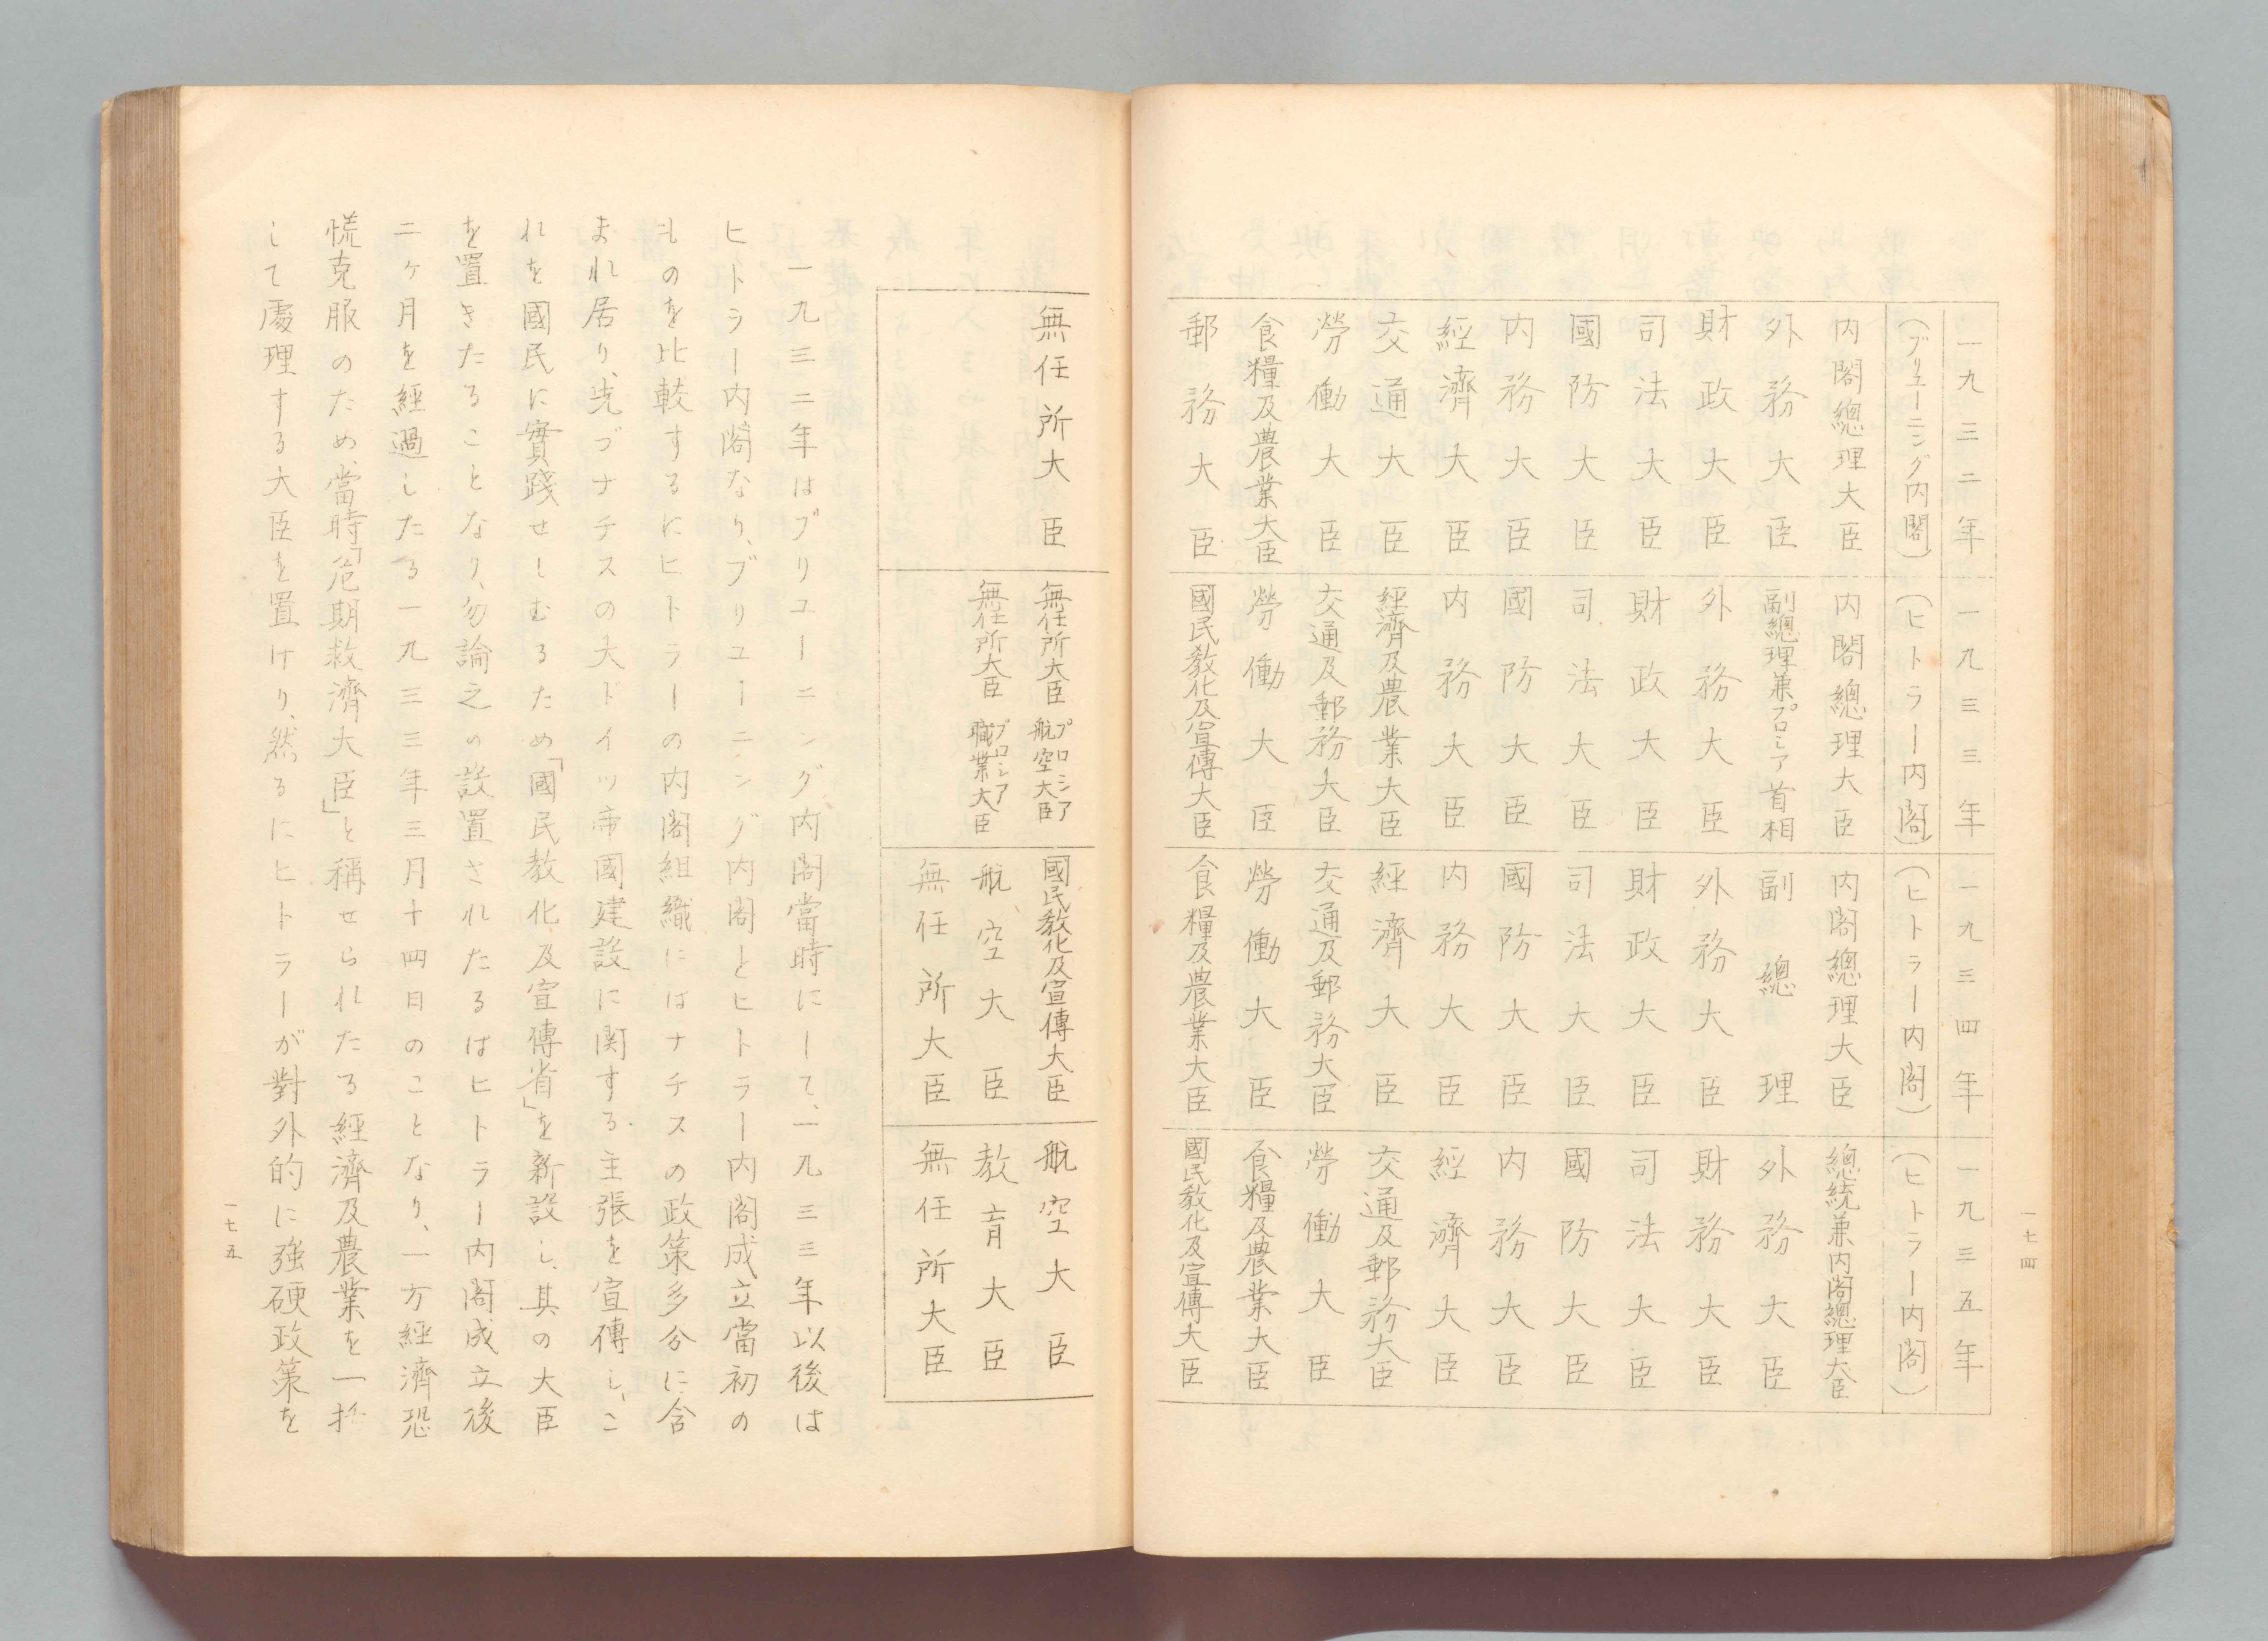 一九三二年
(ブリューニング内閣)
内閣總理大臣
外務大臣
財政大臣
司法大臣
國防大臣
内務大臣
經濟大臣
交通大臣
勞働大臣
食糧及農業大臣
郵務大臣
一九三三年
(ヒトラー内閣)
内閣總理大臣
副總理兼プロシア首相
外務大臣
財政大臣
司法大臣
國防大臣
内務大臣
經濟及農業大臣
交通及郵務大臣
勞働大臣
國民教化及宣傳大臣
一九三四年
(ヒトラー内閣)
内閣總理大臣
副總理
外務大臣
財政大臣
司法大臣
國防大臣
内務大臣
經濟大臣
交通及郵務大臣
勞働大臣
食糧及農業大臣
一九三五年
(ヒトラー内閣)
總統兼内閣總理大臣
外務大臣
財務大臣
司法大臣
國防大臣
内務大臣
經濟大臣
交通及郵務大臣
勞働大臣
食糧及農業大臣
國民教化及宣傳大臣
一七四
無任所大臣
無任所大臣 プロシア航空大臣
無任所大臣 プロシア職業大臣
國民教化及宣傳大臣
航空大臣
無任所大臣
航空大臣
教育大臣
無任所大臣
一九三二年はブリユーニング内閣當時にして、一九三三年以後は
ヒトラー内閣なり、ブリユーニング内閣とヒトラー内閣成立當初の
ものを比較するにヒトラーの内閣組織にはナチスの政策多分に含
まれ居り、先づナチスの大ドイツ帝國建設に関する主張を宣傳し、こ
れを國民に實践せしむるため「國民教化及宣傳省」を新設し、其の大臣
を置きたることなり、勿論之の設置されたるはヒトラー内閣成立後
二ヶ月を經過したる一九三三年三月十四日のことなり、一方經濟恐
慌克服のため、當時「危期救濟大臣」と稱せられたる經濟及農業を一括
して處理する大臣を置けり、然るにヒトラーが對外的に強硬政策を
一七五